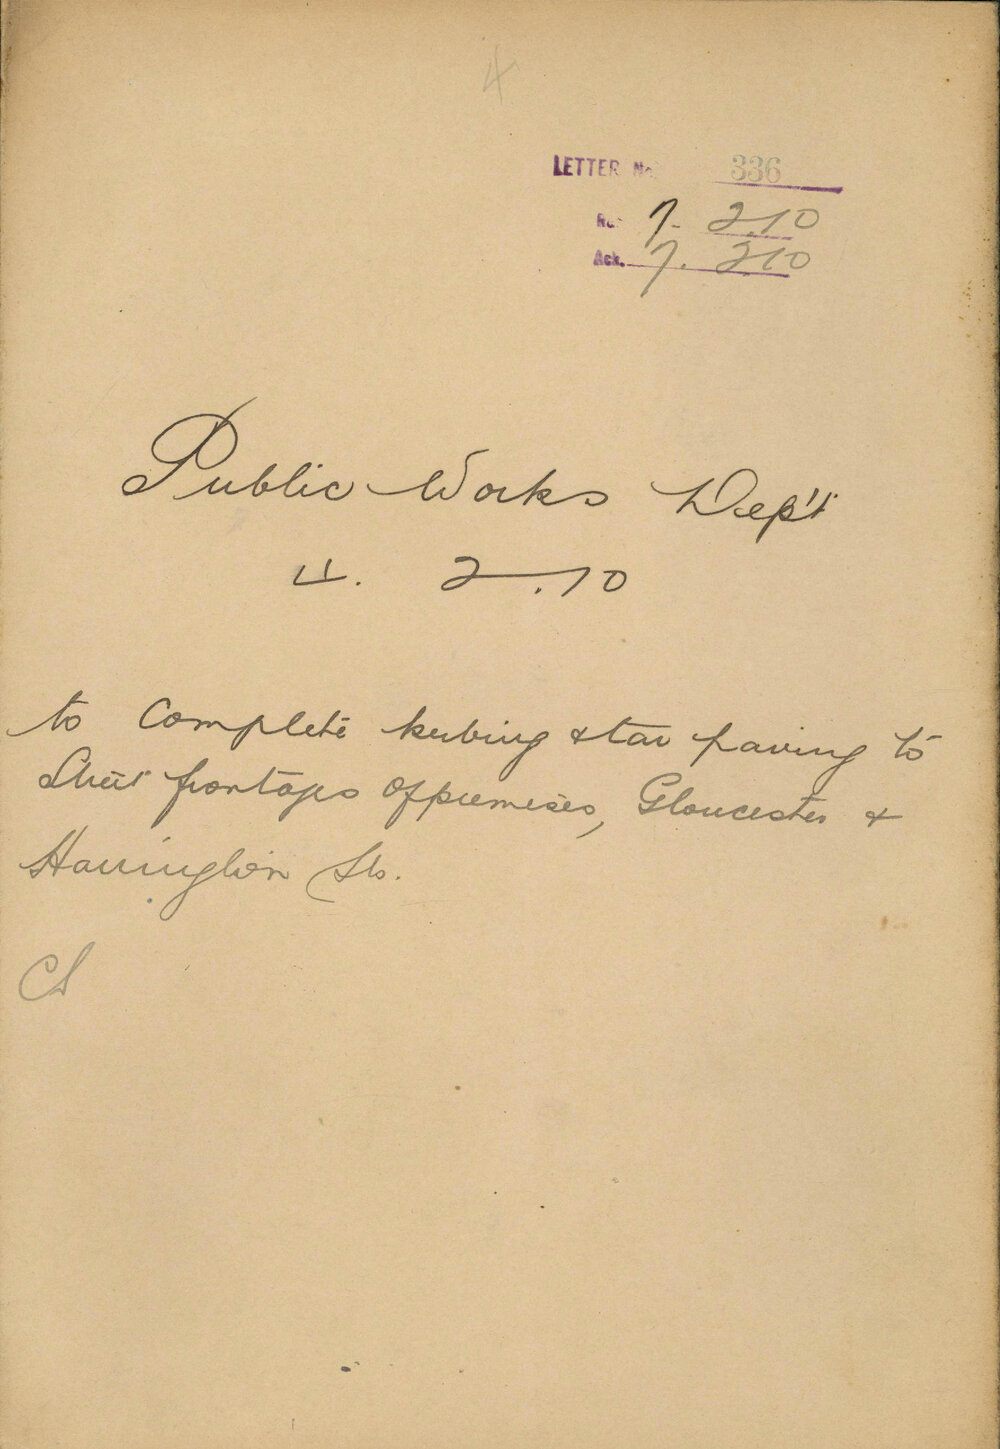 4
LETTER No. 336
Rec. 7. 2.10
Ack. 7. 2 10
Public Works Dep't
4. 2.10
to Complete kerbing & tar paving to
Street frontages of premises, Gloucester &
Harrington Sts.